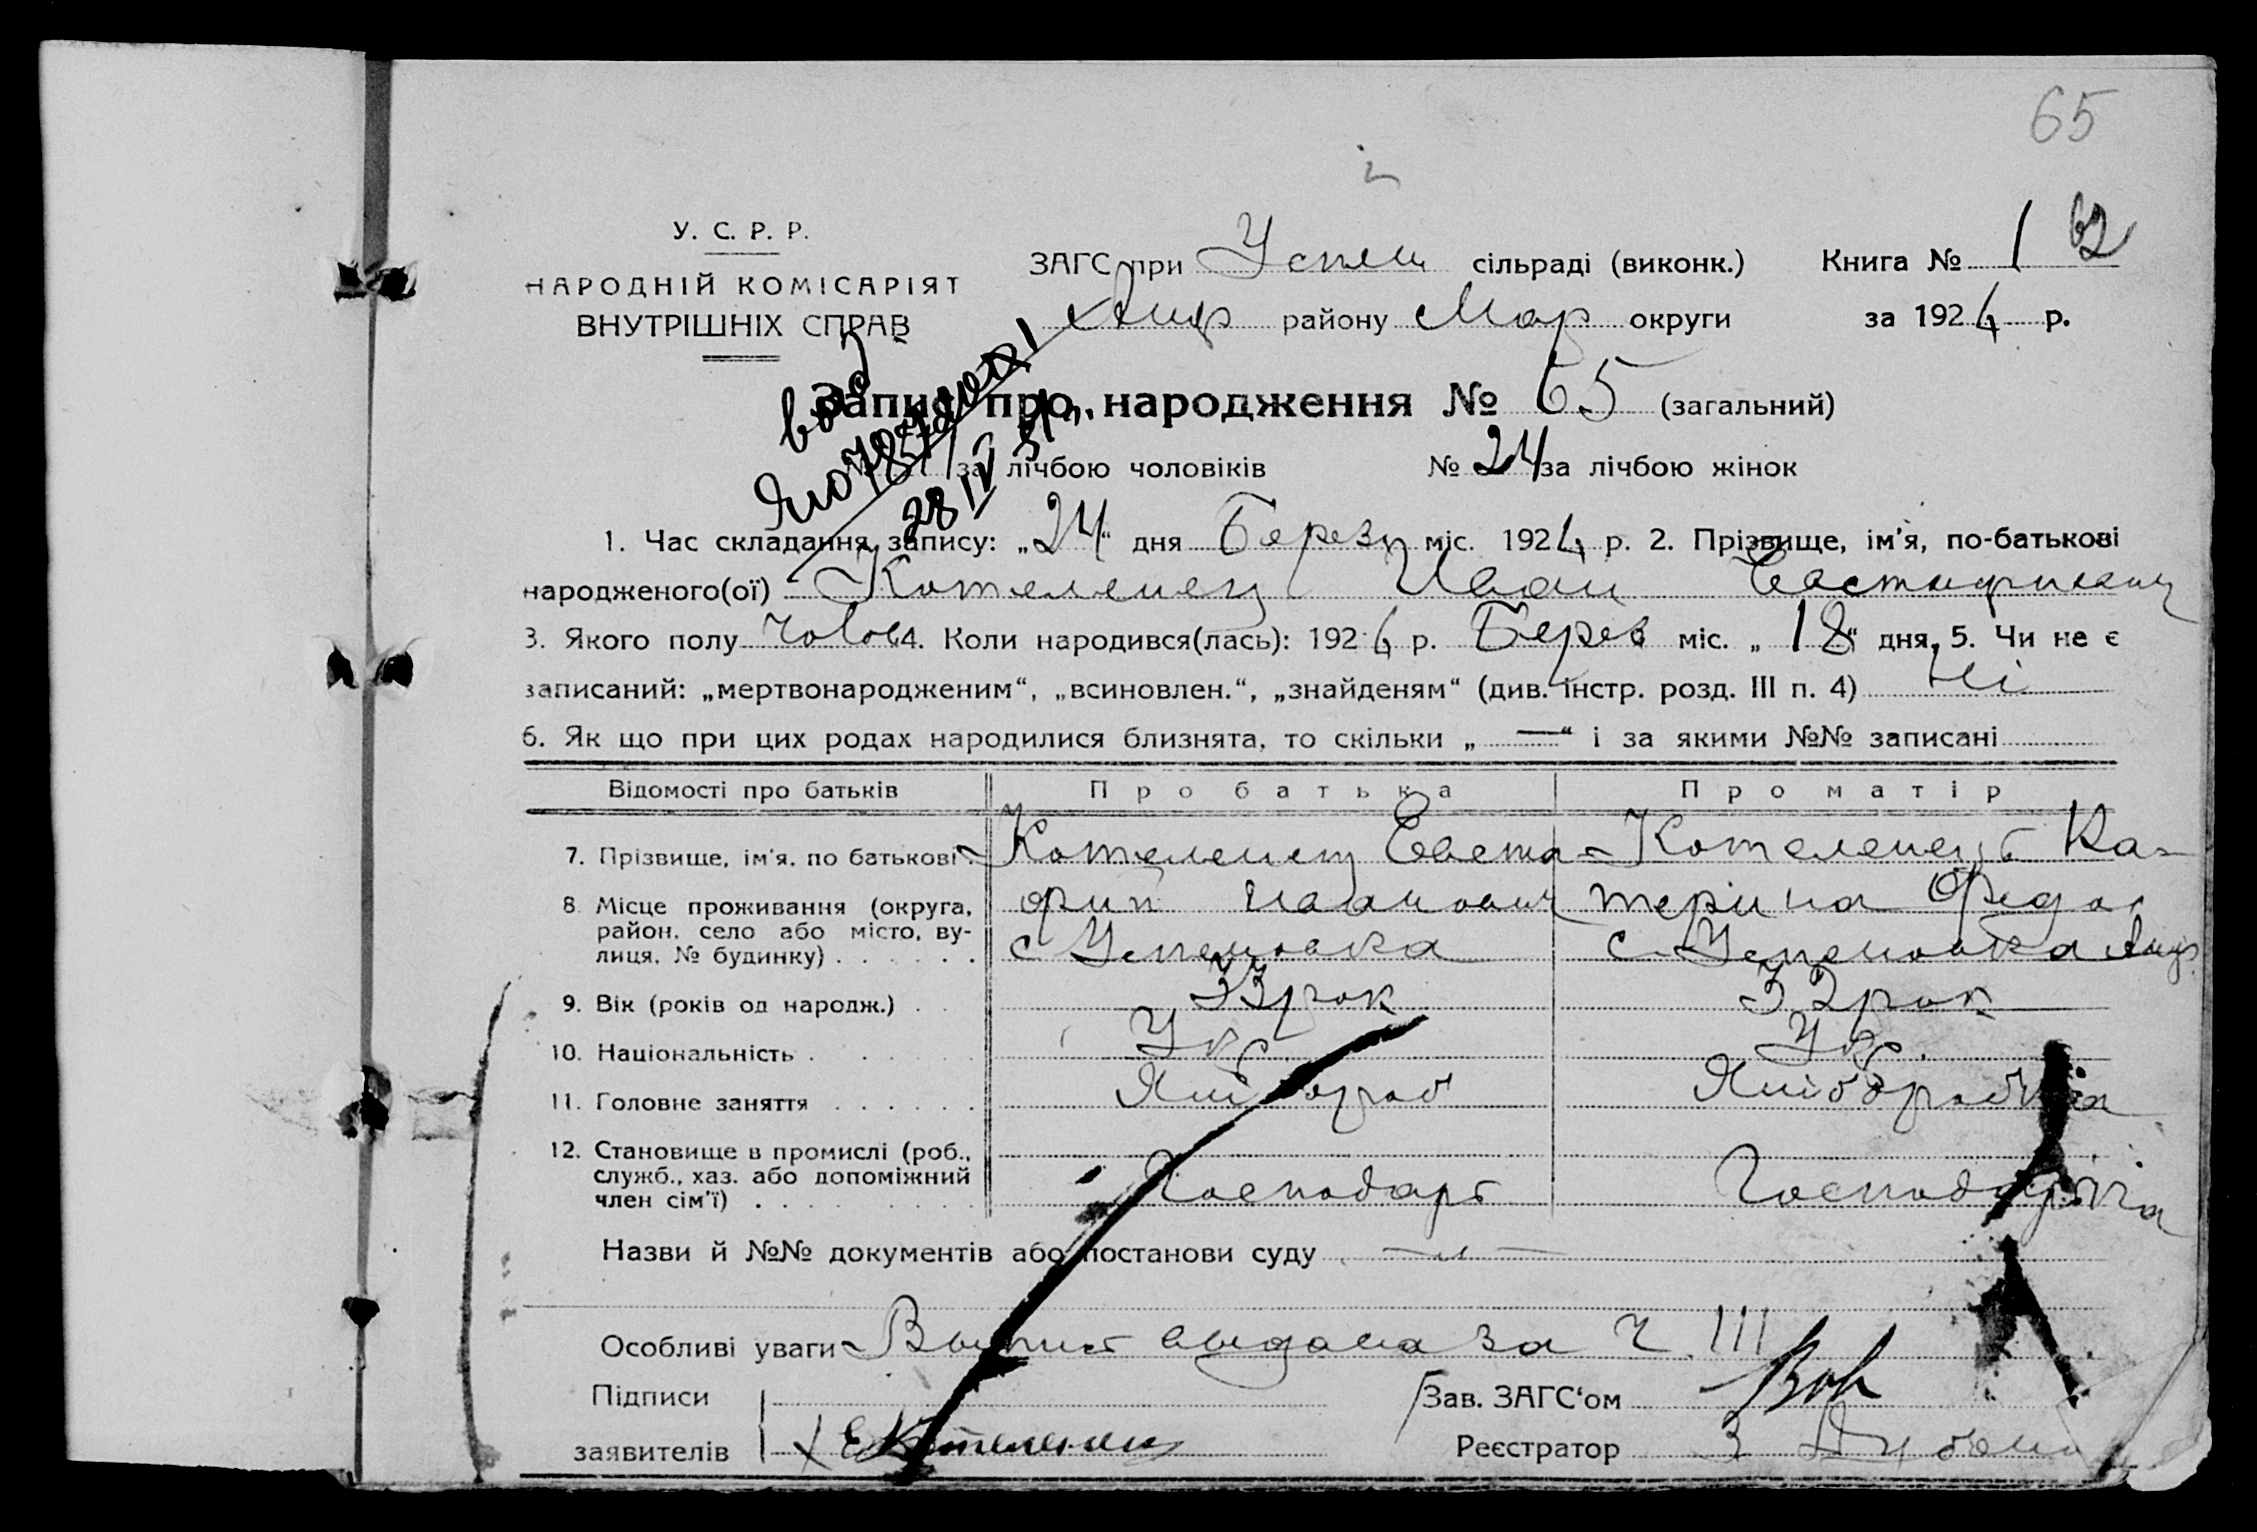 65
У. С. Р. Р.
НАРОДНІЙ КОМІСАРІЯТ
ВНУТРІШНІХ СПРАВ
ЗАГС при Успен сільраді (виконк.) Книга № 1 62
району Мар округи за 1926 р.
Запис про народження № 65 (загальний)
№ за лічбою чоловіків № 24 за лічбою жінок
28 IV
1. Час складання запису: „24“ дня Березн міс. 1926 р. 2. Прізвище, ім'я, по-батькові
народженого(ої) Котеленец Иван Евстафиевич
3. Якого полу чолов 4. Коли народився(лась): 1926 р. Берез міс. „18“ дня, 5. Чи не є
записаний: „мертвонародженим“, „всиновлен.“, „знайденям“ (див. інстр. розд. III п. 4) Ні
6. Як що при цих родах народилися близнята, то скільки „—“ і за якими №№ записані
Відомості про батьків Про батька Про матір
7. Прізвище, ім'я, по батькові Котеленец Евста- Котеленець Ка-
8. Місце проживання (округа, фий Иванович терина Федо
район, село або місто, ву- с Успеновка с. Успеновка
лиця, № будинку)
9. Вік (років од народж.) 33 рок 32 рок
10. Національність Укр. Укр.
11. Головне заняття Хлібороб Хліборобка
12. Становище в промислі (роб.,
служб., хаз. або допоміжний Господарь Господарка
член сім'ї)
Назви й №№ документів або постанови суду —"—
Особливі уваги Выпис выдана за Ч. III
Підписи Зав. ЗАГС'ом
заявителів Е Котеленец Реєстратор